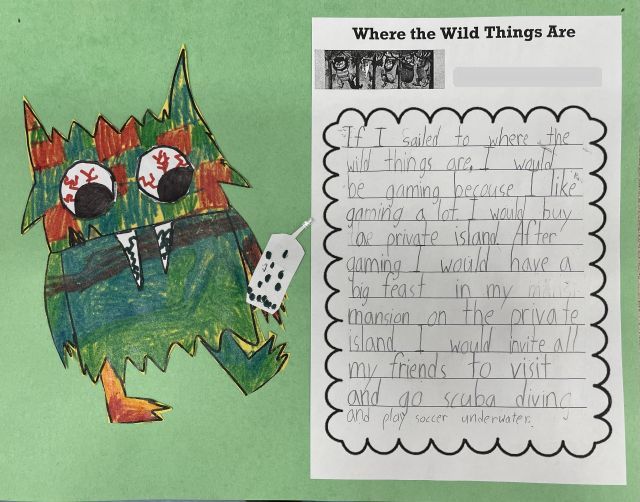 Where the Wild Things Are
If I sailed to where the
wild things are, I would
be gaming because I like
gaming a lot. I would buy
private island. After
gaming I would have a
big feast in my
mansion on the private
island. I would invite all
my friends to visit
and go scuba diving
and play soccer underwater.